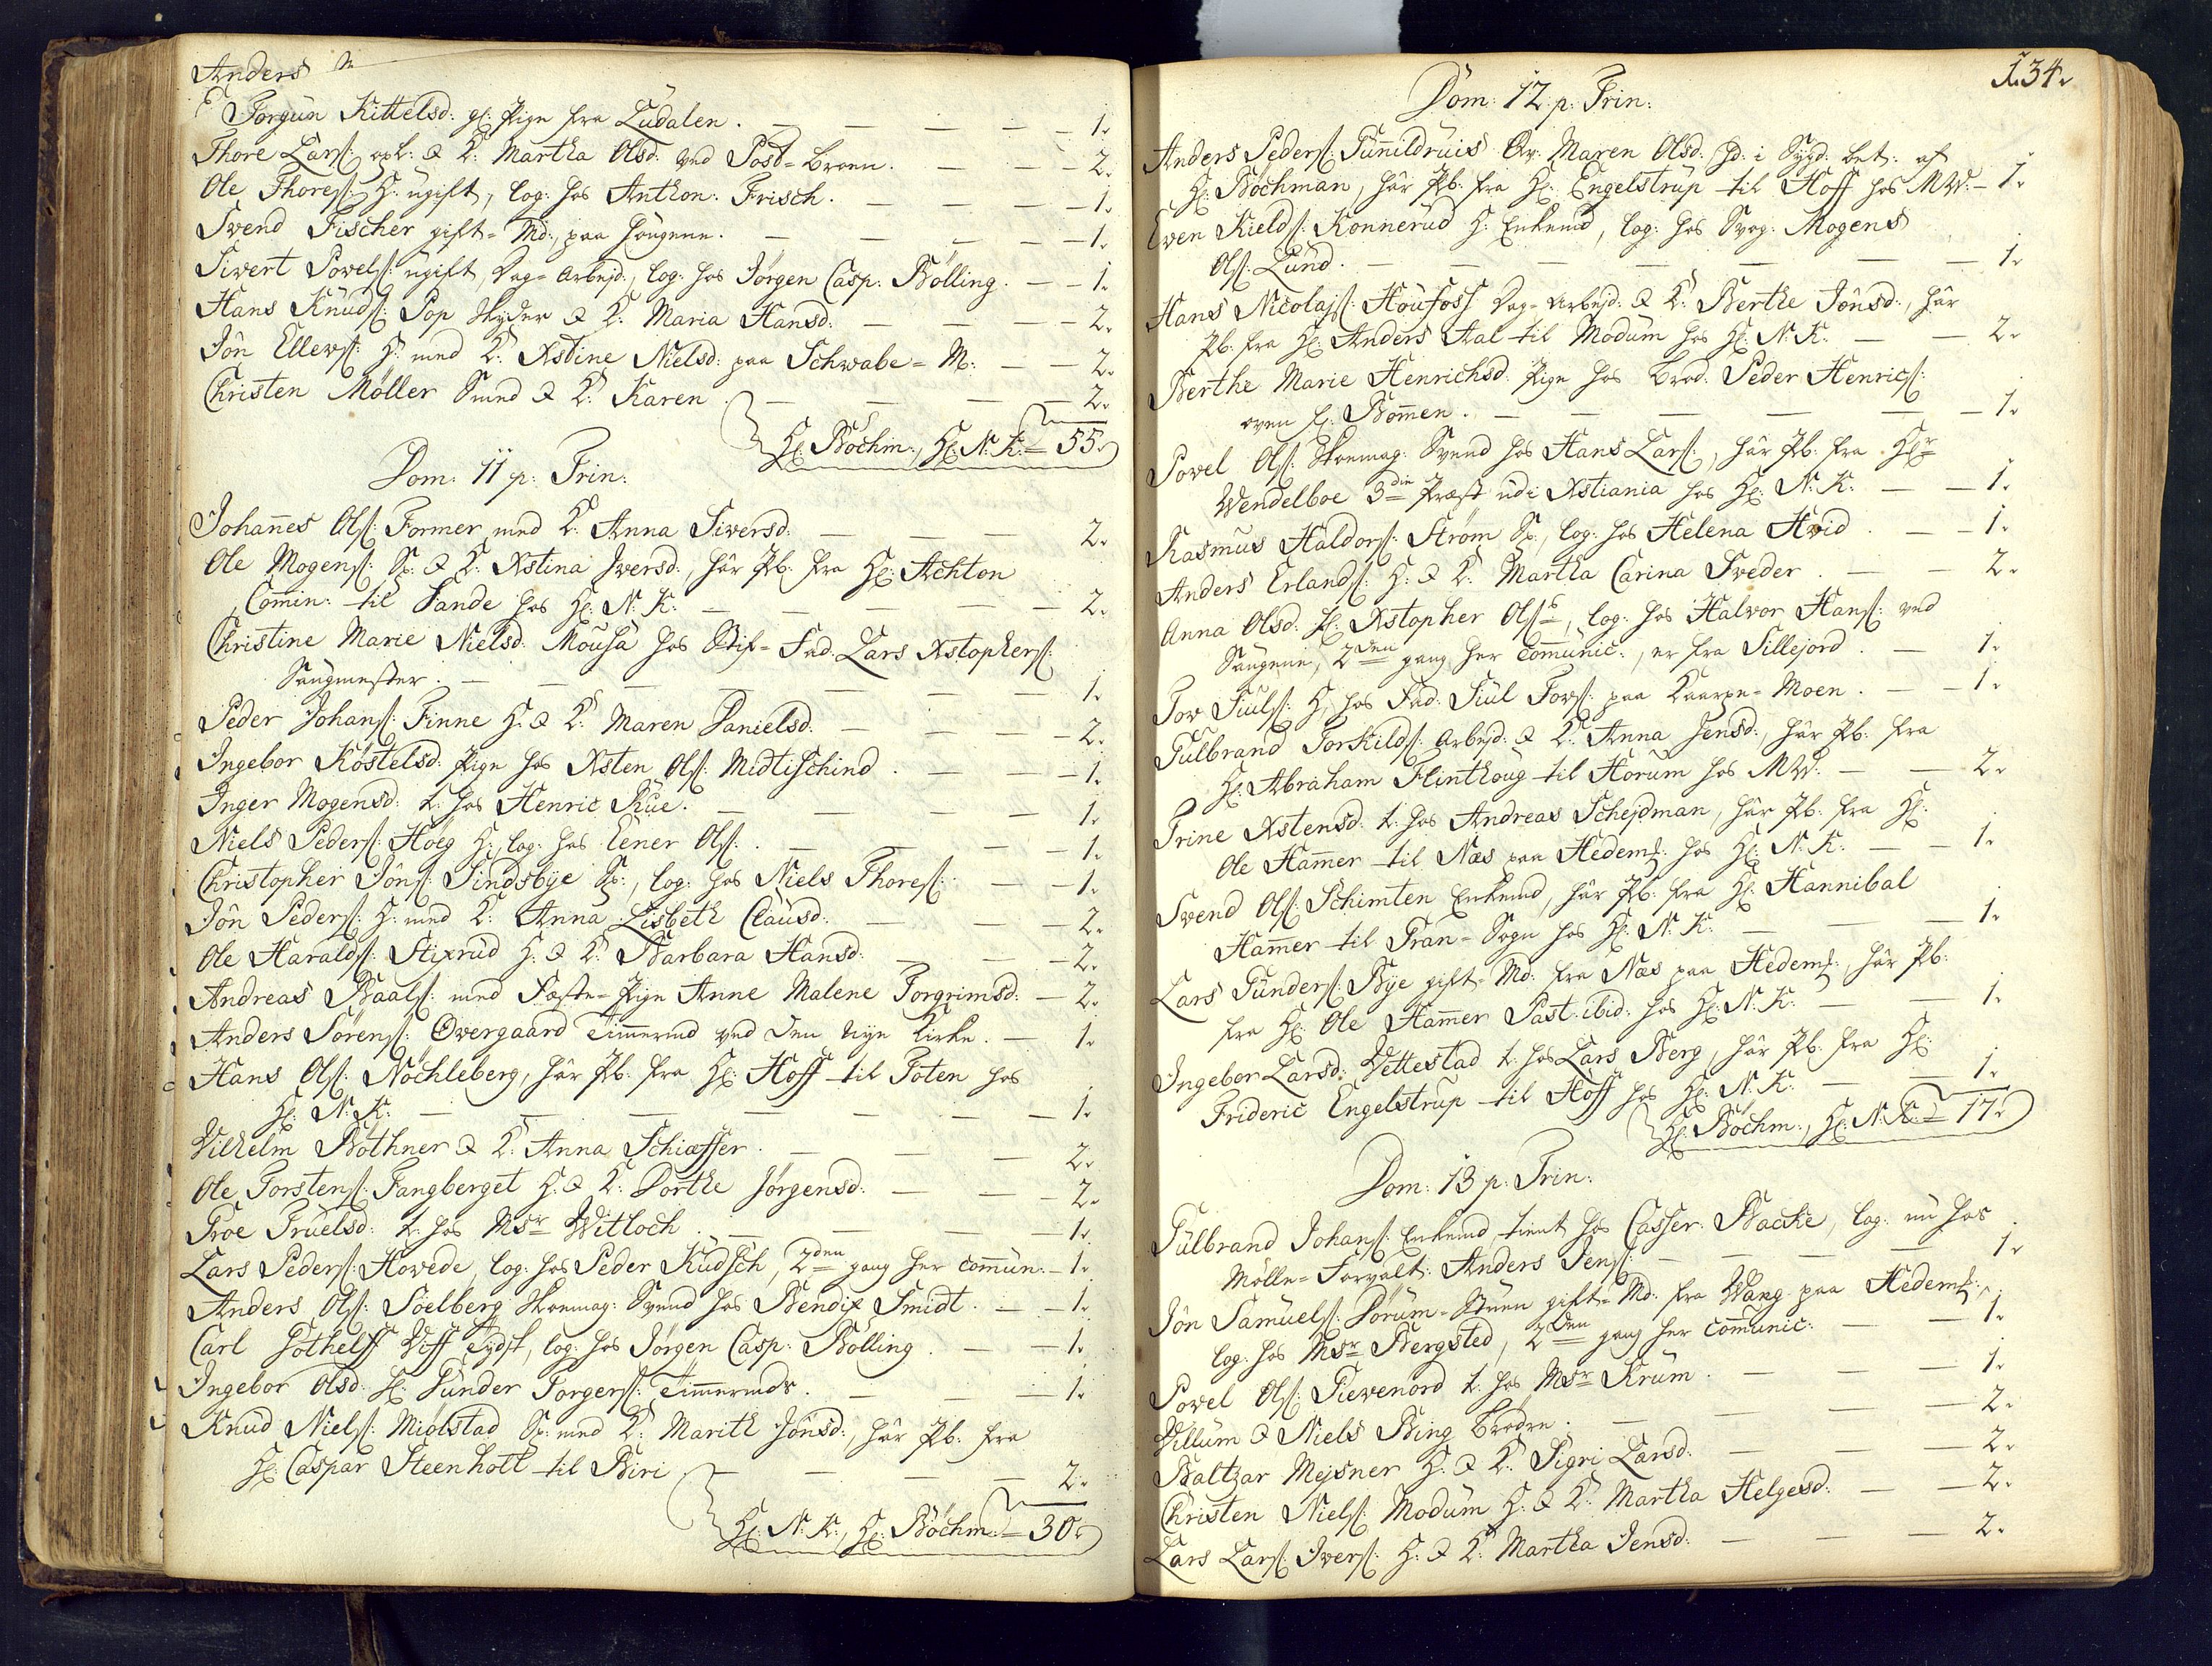 Anders
Torgun Kittelsd: gl: Pige fra Ludalen. — 1.
Thore Lars: opl: & K: Martha Olsd: ved Post-broen. — 2.
Ole Thores: H: ugift, log: hos Anthon: Frisch. — 1.
Svend Fischer gift-Md:, paa Haugene. — 1.
Sivert Povels: ugift, Dag-arbejd:, log: hos Jørgen Casp: Bølling. — 1.
Hans Knuds: Pop Skyder & K: Maria Hansd: — 2.
Jôn Ellevs: H: med K: Xstine Nielsd: paa Schwabe-M: — 2.
Christen Møller Smed & K: Karen. — 2.
Hl: Bôchm:, Hl: N: K: = 55.
Dom: 11 p: Trin:
Johan̄es Ols: Former med K: Anna Siversd: — 2.
Ole Mogens: Sp: & K: Xstina Iversd:, har Pb: fra Hl: Achton
Com̄in: til Sande hos Hl: N: K: — 2.
Christine Marie Nielsd: Mousa hos Stif-Fad: Lars Xstophers:
Saugmester. — 1.
Peder Johans: Finne H: & K: Maren Danielsd: — 2.
Ingebor Kôstelsd: Pige hos Xsten Ols: Midtischind. — 1.
Inger Mogensd: t: hos Henric Rüe. — 1.
Niels Peders: Høeg H:, log: hos Eener Ols:. — 1.
Christopher Jôns: Sindsbye Sp:, log: hos Niels Thores: — 1.
Jôn Peders: H: med K: Anna Lisbeth Clausd: — 2.
Ole Haralds: Stixrud H: & K: Barbara Hansd: — 2.
Andreas Baals: med Fæste-Pige Anne Malene Torgrimsd: — 2.
Anders Sørens: Overgaard Tim̄ermd ved den nye Kirke. — 1.
Hans Ols: Nôchleberg, har Pb: fra Hl: Hoff til Toten hos
Hl: N: K: — 1.
Vilhelm Bôthner & K: Anna Schiæffer. — 2.
Ole Torstens: Fangberget H: & K: Dorthe Jørgensd: — 2.
Troe Truelsd: t: hos Msr Witloch. — 1.
Lars Peders: Hovede, log: hos Peder Kudsch, 2den gang her com̄un: — 1.
Anders Ols: Söelberg Skoemag: Svend hos Bendix Smidt. — 1.
Carl Gothelff Viff Tydsk, log: hos Jørgen Casp: Bôlling. — 1.
Ingebor Olsd: Gunder Torgers: Tim̄ermds. — 1.
Knud Niels: Miôlstad Sp: med K: Marith Jônsd:, har Pb: fra
Hl: Caspar Steenhott til Biri — 2.
Hl: N: K:, Hl: Bôchm: = 30.
134.
Dom: 12 p: Trin:
Anders Peders: Gun̄ildruis Qv: Maren Olsd: Sd: i Sygd: bet: af
Hl: Bôchman, har Pb: fra Hl: Engelstrup til Hoff hos MW: — 1.
Even Kields: Konnerud H: Enkemd, log: hos Svog: Mogens
Ols: Lund. — 1.
Hans Nicolajs: Houfoss Dag-arbejd: & K: Berthe Jônsd:, har
Pb: fra Hl: Anders Aal til Modum hos Hl: N: K: — 2.
Berthe Marie Henrichsd: Pige hos brod: Peder Henrics:
oven f: Bom̄en. — 1.
Povel Ols: Skoemag: Svend hos Hans Lars:, har Pb: fra Hr
Wendelboe 3die Præst udi Xstiania hos Hl: N: K: — 1.
Rasmus Haldors: Strøm Sp:, log: hos Helena Hvid. — 1.
Anders Erlands: H: & K: Martha Carina Sveder. — 2.
Anna Olsd: Xstopher Ols:, log: hos Halvor Hans: ved
Saugene, 2den gang her com̄unic:, er fra Sillejord. — 1.
Tov Siuls: H, hos Fad: Siul Tovs: paa Kaarpe-Moen. — 1.
Gulbrand Torkilds: Arbejd: & K: Anna Jensd:, har Pb: fra
Hl: Abraham Flinthoug til Horum hos MW: — 2.
Trine Xstensd: t: hos Andreas Schejdman, har Pb: fra Hl:
Ole Ham̄er til Næs paa Hedem: hos Hl: N: K: — 1.
Svend Ols: Schimten Enkemd, har Pb: fra Hl: Hannibal
Ham̄er til Gran-Sogn hos Hl: N: K: — 1.
Lars Gunders: Bye gift-Md: fra Næs paa Hedem:, har Pb:
fra Hl: Ole Ham̄er Past: ibid: hos Hl: N: K: — 1.
Ingebor Larsd: Vettestad t: hos Lars Berg, har Pb: fra Hl:
Frideric Engelstrup til Hoff hos Hl: N: K: — 1.
Hl: Bôchm:, Hl: N: K: = 17.
Dom: 13 p: Trin:
Gulbrand Johans: Enkemd tient hos Casser: Backe, log: nu hos
Mølle-Forvalt: Anders Jens: — 1.
Jôn Samuels: Dorum-Stuen gift-Md: fra Wang paa Hedem:,
log: hos Msr Bergsted, 2den gang her com̄unic: — 1.
Povel Ols: Gievenord t: hos Msr Krum. — 1.
Villum & Niels Bing Brødre. — 2.
Baltzar Mejsner H: & K: Sigri Larsd: — 2.
Christen Niels: Modum H: & K: Martha Helgesd: — 2.
Lars Lars: Ivers: H: & K: Martha Jensd: — 2.